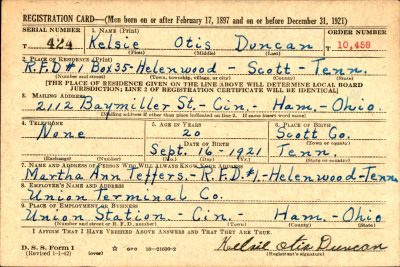 REGISTRATION CARD—(Men born on or after February 17, 1897 and on or before December 31, 1921)
SERIAL NUMBER 1. NAME (Print) ORDER NUMBER
T 424 Kelsie Otis Duncan T 10,458
(First) (Middle) (Last)
2. PLACE OF RESIDENCE (Print)
R.F.D #1 Box 35- Helenwood - Scott - Tenn.
(Number and street) (Town, township, village, or city) (County) (State)
[THE PLACE OF RESIDENCE GIVEN ON THE LINE ABOVE WILL DETERMINE LOCAL BOARD
JURISDICTION; LINE 2 OF REGISTRATION CERTIFICATE WILL BE IDENTICAL]
3. MAILING ADDRESS
2112 Baymiller St. - Cin. - Ham. - Ohio
[Mailing address if other than place indicated on line 2. If same insert word same]
4. TELEPHONE 5. AGE IN YEARS 6. PLACE OF BIRTH
None 20 Scott Co.
DATE OF BIRTH (Town or county)
Sept. 16 - 1921 Tenn.
(Exchange) (Number) (Mo.) (Day) (Yr.) (State or country)
7. NAME AND ADDRESS OF PERSON WHO WILL ALWAYS KNOW YOUR ADDRESS
Martha Ann Teffers. - R.F.D #1. - Helenwood - Tenn
8. EMPLOYER'S NAME AND ADDRESS
Union Terminal Co.
9. PLACE OF EMPLOYMENT OR BUSINESS
Union Station. - Cin. - Ham. - Ohio
(Number and street or R. F. D. number) (Town) (County) (State)
I AFFIRM THAT I HAVE VERIFIED ABOVE ANSWERS AND THAT THEY ARE TRUE.
D. S. S. Form 1
(Revised 1-1-42) (over) Kelsie Otis Duncan
(Registrant's signature)